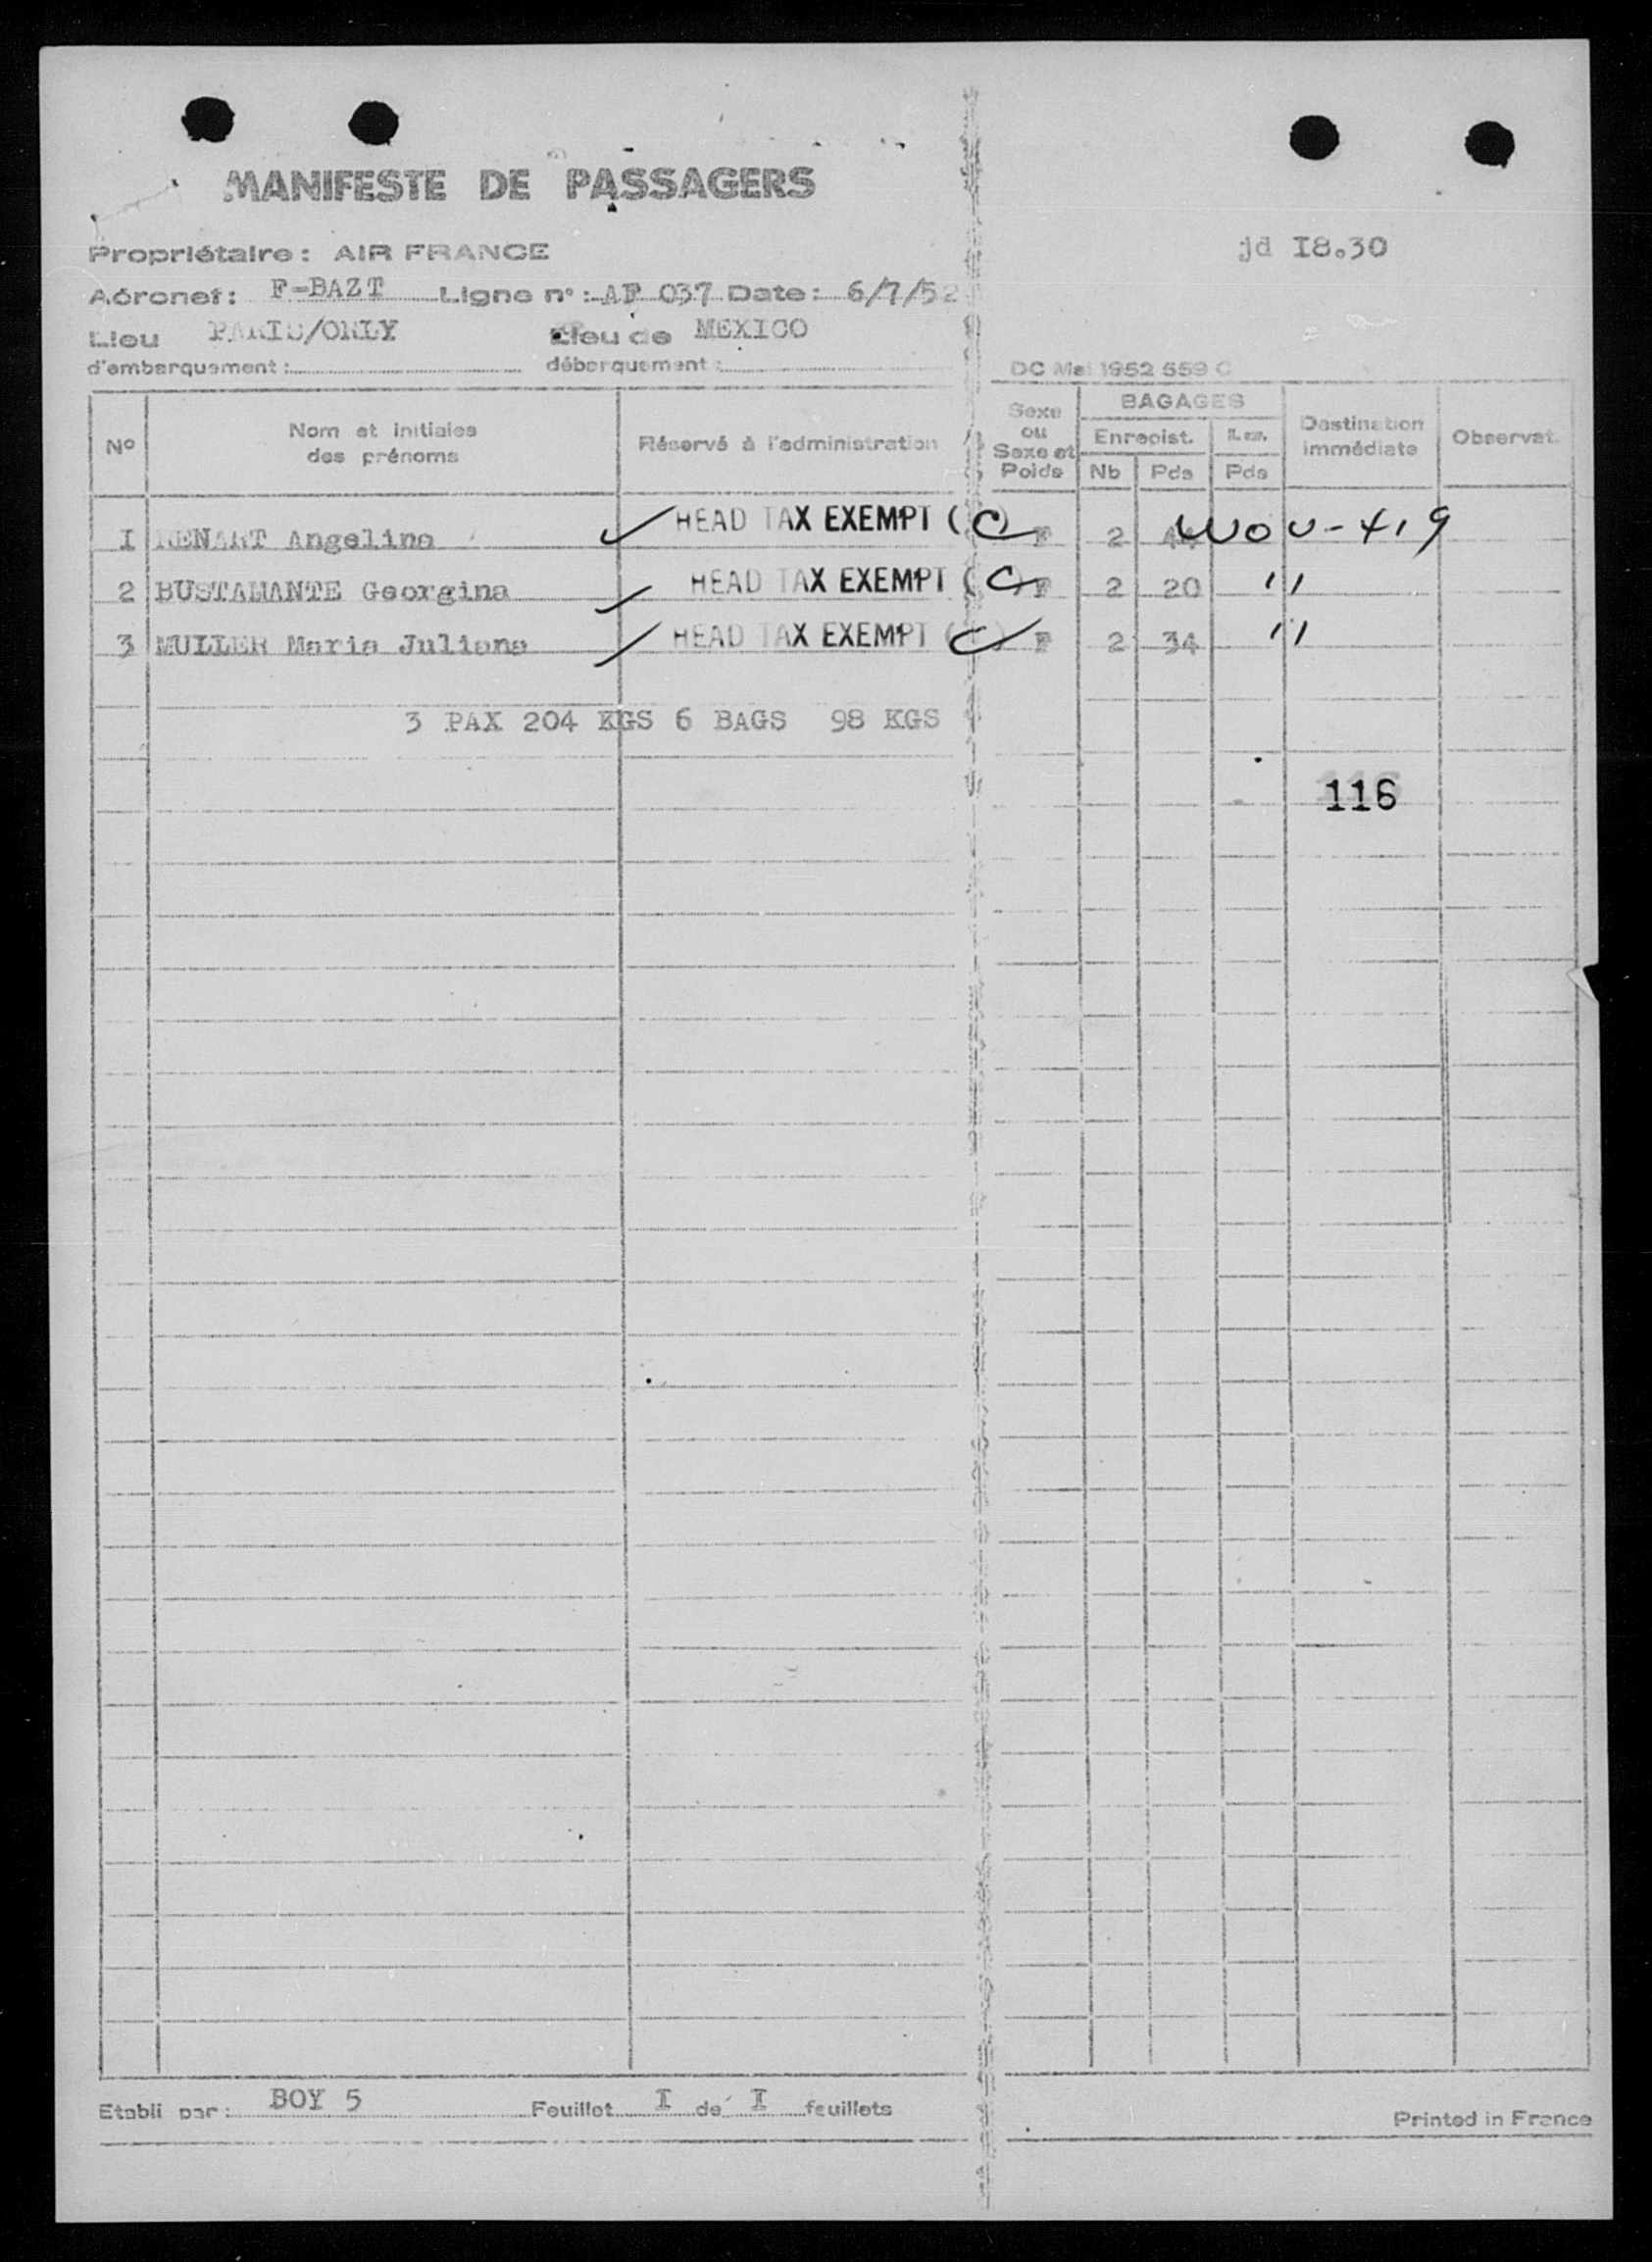 MANIFESTE DE PASSAGERS
jd I8.30
Propriétaire : AIR FRANCE
Aéronef : F-BAZT Ligne n° : AF 037 Date : 6/7/52
Lieu d'embarquement : PARIS/ORLY Lieu de débarquement : MEXICO
DC Mai 1952 659 C
N° Nom et initiales des prénoms Réservé à l'administration Sexe ou Sexe et Poids BAGAGES Enregist. Nb Pds Pds Destination immédiate Observat.
I RENART Angelina HEAD TAX EXEMPT (C) F 2 WOU-419
2 BUSTAMANTE Georgina HEAD TAX EXEMPT (C) F 2 20 "
3 MULLER Maria Juliana HEAD TAX EXEMPT (C) F 2 34 "
3 PAX 204 KGS 6 BAGS 98 KGS
116
Etabli par : BOY 5 Feuillet I de I feuillets
Printed in France